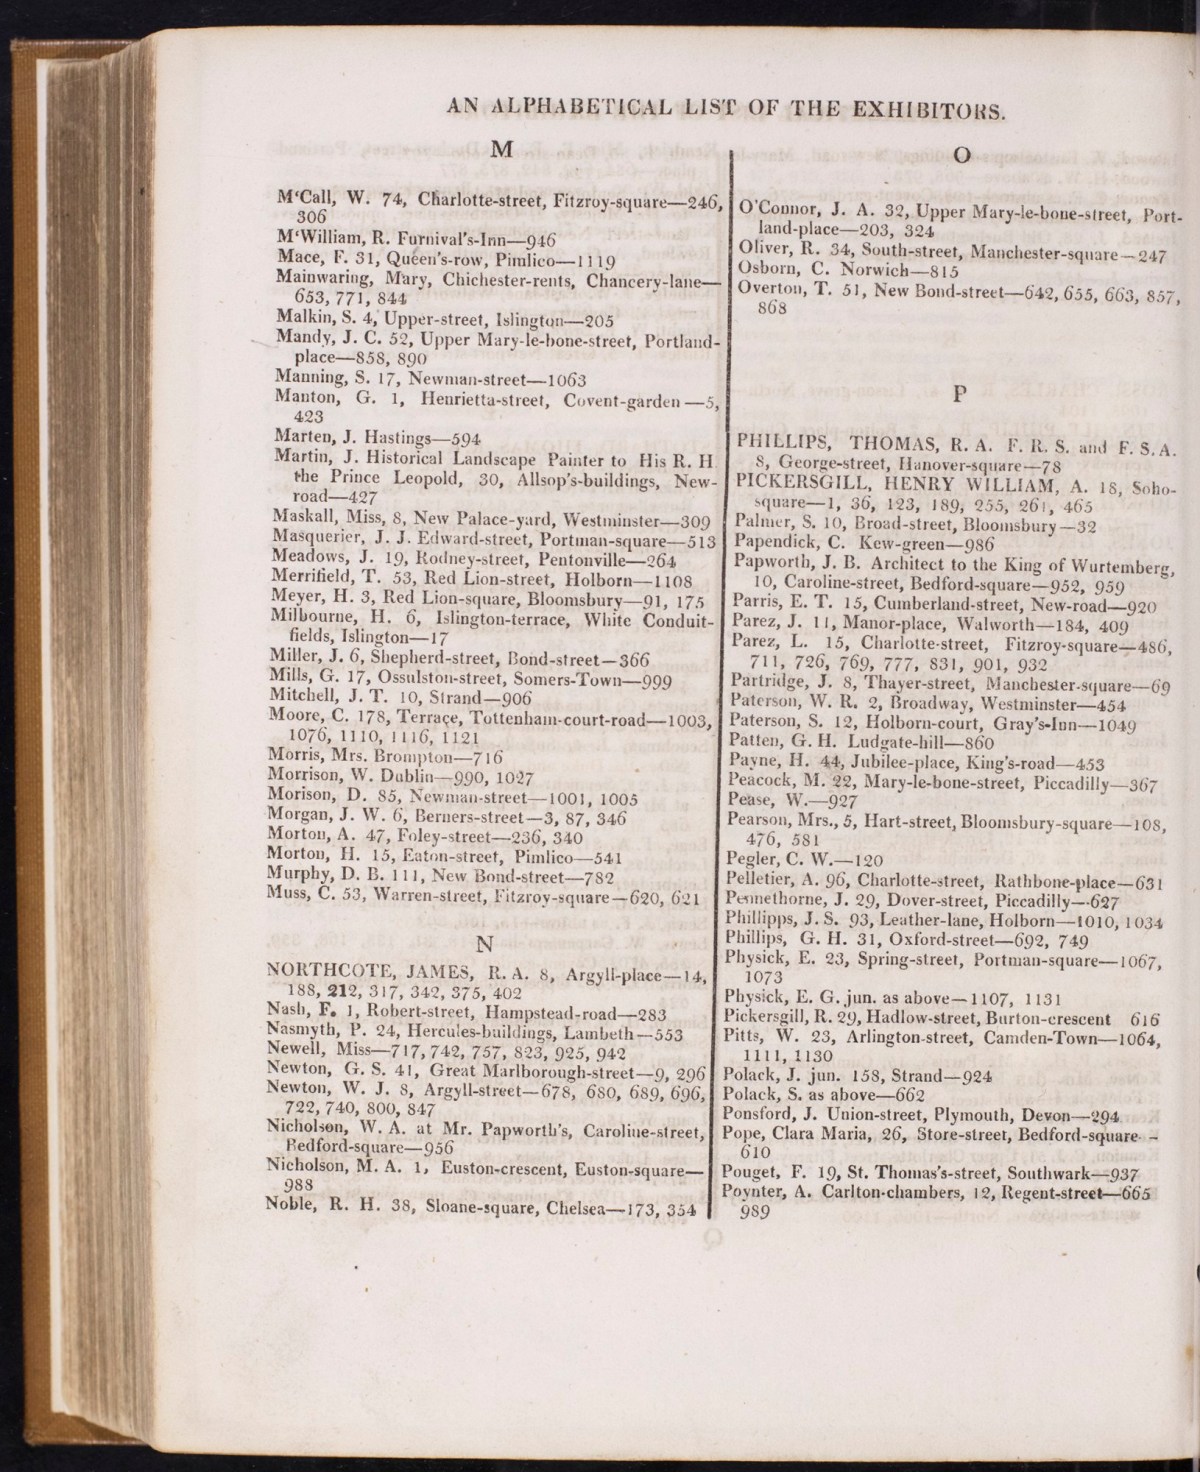 AN ALPHABETICAL LIST OF THE EXHIBITORS.
M
M'Call, W. 74, Charlotte-street, Fitzroy-square—246,
306
M'William, R. Furnival's-Inn—946
Mace, F. 31, Queen's-row, Pimlico—1119
Mainwaring, Mary, Chichester-rents, Chancery-lane—
653, 771, 844
Malkin, S. 4, Upper-street, Islington—205
Mandy, J. C. 52, Upper Mary-le-bone-street, Portland-
place—858, 890
Manning, S. 17, Newman-street—1063
Manton, G. 1, Henrietta-street, Covent-garden—5,
423
Marten, J. Hastings—594
Martin, J. Historical Landscape Painter to His R. H.
the Prince Leopold, 30, Allsop's-buildings, New-
road—427
Maskall, Miss, 8, New Palace-yard, Westminster—309
Masquerier, J. J. Edward-street, Portman-square—513
Meadows, J. 19, Rodney-street, Pentonville—264
Merrifield, T. 53, Red Lion-street, Holborn—1108
Meyer, H. 3, Red Lion-square, Bloomsbury—91, 175
Milbourne, H. 6, Islington-terrace, White Conduit-
fields, Islington—17
Miller, J. 6, Shepherd-street, Bond-street—366
Mills, G. 17, Ossulston-street, Somers-Town—999
Mitchell, J. T. 10, Strand—906
Moore, C. 178, Terrace, Tottenham-court-road—1003,
1076, 1110, 1116, 1121
Morris, Mrs. Brompton—716
Morrison, W. Dublin—990, 1027
Morison, D. 85, Newman-street—1001, 1005
Morgan, J. W. 6, Berners-street—3, 87, 346
Morton, A. 47, Foley-street—236, 340
Morton, H. 15, Eaton-street, Pimlico—541
Murphy, D. B. 111, New Bond-street—782
Muss, C. 53, Warren-street, Fitzroy-square—620, 621
N
NORTHCOTE, JAMES, R. A. 8, Argyll-place—14,
188, 212, 317, 342, 375, 402
Nash, F. 1, Robert-street, Hampstead-road—283
Nasmyth, P. 24, Hercules-buildings, Lambeth—553
Newell, Miss—717, 742, 757, 823, 925, 942
Newton, G. S. 41, Great Marlborough-street—9, 296
Newton, W. J. 8, Argyll-street—678, 680, 689, 696,
722, 740, 800, 847
Nicholson, W. A. at Mr. Papworth's, Caroline-street,
Bedford-square—956
Nicholson, M. A. 1, Euston-crescent, Euston-square—
988
Noble, R. H. 38, Sloane-square, Chelsea—173, 354
O
O'Connor, J. A. 32, Upper Mary-le-bone-street, Port-
land-place—203, 324
Oliver, R. 34, South-street, Manchester-square—247
Osborn, C. Norwich—815
Overton, T. 51, New Bond-street—642, 655, 663, 857,
868
P
PHILLIPS, THOMAS, R. A. F. R. S. and F. S. A.
8, George-street, Hanover-square—78
PICKERSGILL, HENRY WILLIAM, A. 18, Soho-
square—1, 36, 123, 189, 255, 261, 465
Palmer, S. 10, Broad-street, Bloomsbury—32
Papendick, C. Kew-green—986
Papworth, J. B. Architect to the King of Wurtemberg,
10, Caroline-street, Bedford-square—952, 959
Parris, E. T. 15, Cumberland-street, New-road—920
Parez, J. 11, Manor-place, Walworth—184, 409
Parez, L. 15, Charlotte-street, Fitzroy-square—486,
711, 726, 769, 777, 831, 901, 932
Partridge, J. 8, Thayer-street, Manchester-square—69
Paterson, W. R. 2, Broadway, Westminster—454
Paterson, S. 12, Holborn-court, Gray's-Inn—1049
Patten, G. H. Ludgate-hill—860
Payne, H. 44, Jubilee-place, King's-road—453
Peacock, M. 22, Mary-le-bone-street, Piccadilly—367
Pease, W.—927
Pearson, Mrs., 5, Hart-street, Bloomsbury-square—108,
476, 581
Pegler, C. W.—120
Pelletier, A. 96, Charlotte-street, Rathbone-place—631
Pennethorne, J. 29, Dover-street, Piccadilly—627
Phillipps, J. S. 93, Leather-lane, Holborn—1010, 1034
Phillips, G. H. 31, Oxford-street—692, 749
Physick, E. 23, Spring-street, Portman-square—1067,
1073
Physick, E. G. jun. as above—1107, 1131
Pickersgill, R. 29, Hadlow-street, Burton-crescent 616
Pitts, W. 23, Arlington-street, Camden-Town—1064,
1111, 1130
Polack, J. jun. 158, Strand—924
Polack, S. as above—662
Ponsford, J. Union-street, Plymouth, Devon—294
Pope, Clara Maria, 26, Store-street, Bedford-square -
610
Pouget, F. 19, St. Thomas's-street, Southwark—937
Poynter, A. Carlton-chambers, 12, Regent-street—665
989